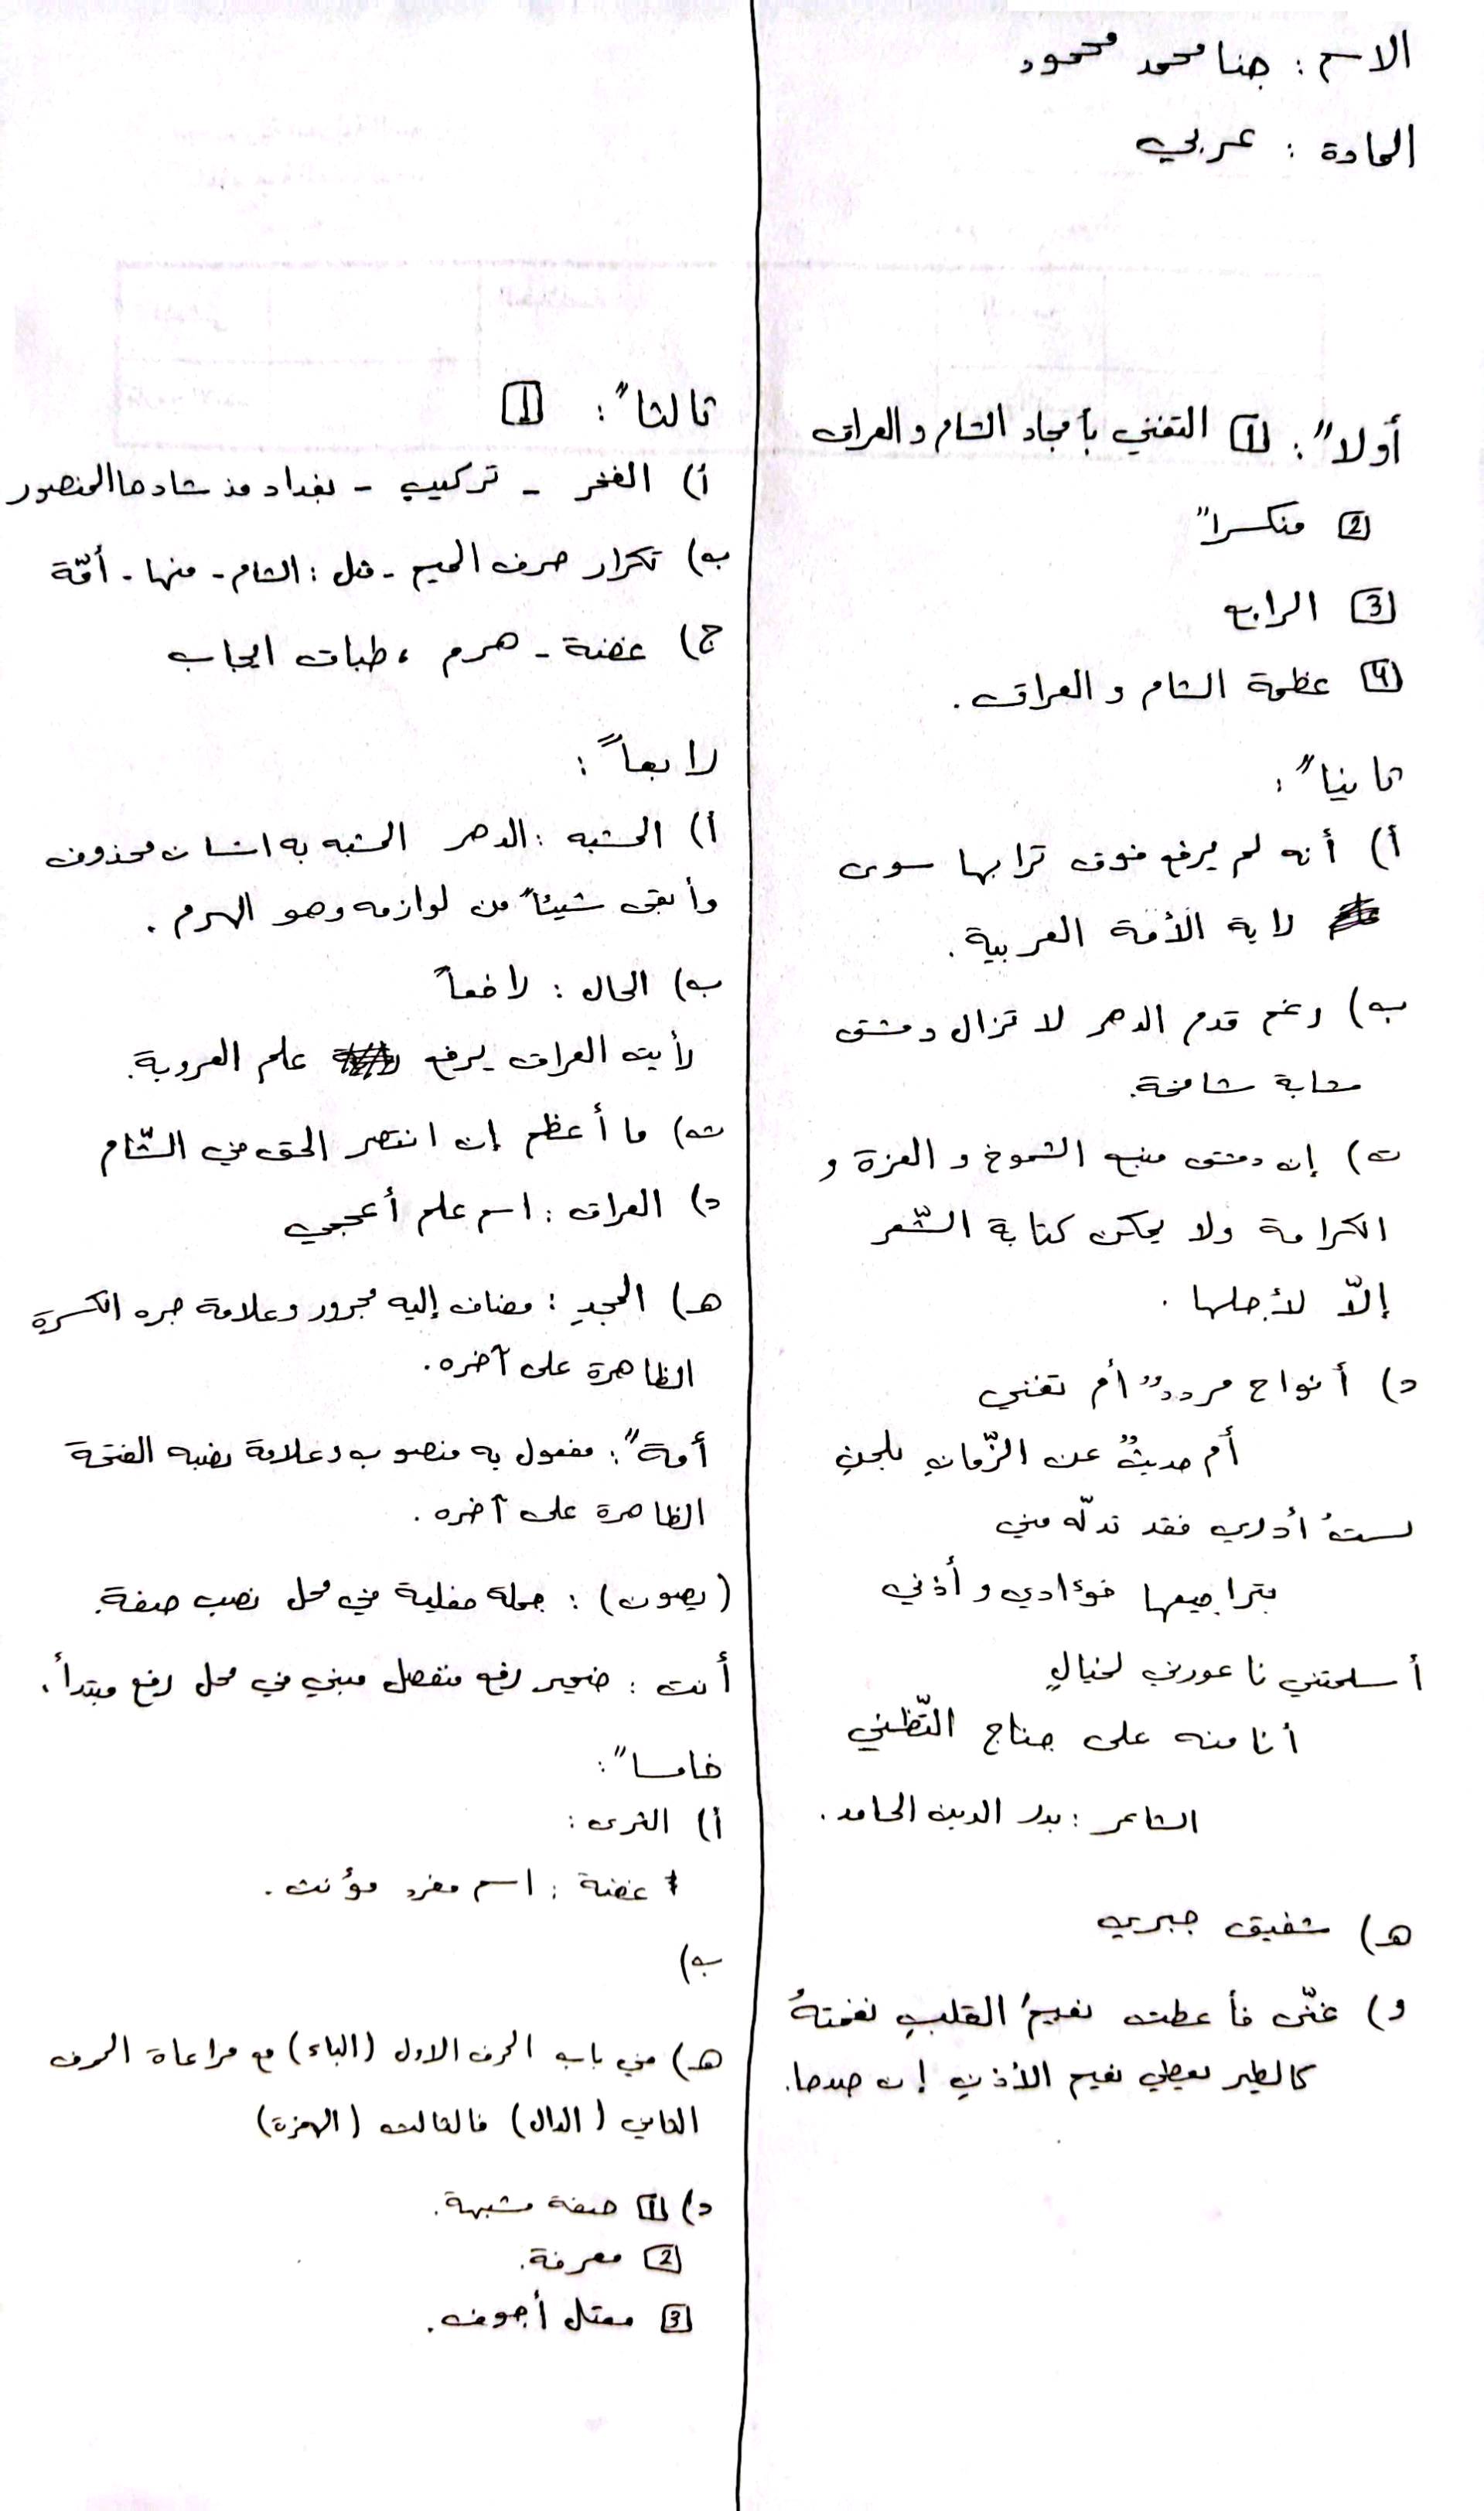 الاسم : جنا محمد محمود
المادة : عربي
أولاً : 1 التغني بأمجاد الشام و العراق
2 منكسراً
3 الرابع
4 عظمة الشام و العراق .
ثانياً :
أ) أنه لم يرفع فوق ترابها سوى
راية الأمة العربية .
ب) رغم قدم الدهر لا تزال دمشق
شابة شامخة .
ت) إن دمشق منبع الشموخ و العزة و
الكرامة ولا يمكن كتابة الشّعر
إلّا لأجلها .
د) أنواح مردد أم تغني
أم حديثٌ عن الزّمانِ بلحنِ
لستُ أدري فقد تدلّه مني
بتراجيعها فؤادي و أذني
أسلمتني ناعورتي لخيالٍ
أنا منه على جناح التّظني
الشاعر : بدر الدين الحامد .
هـ) شفيق جبري
و) غنّى فأعطت نعيمُ القلبِ نغمتهُ
كالطير يعطي نعيم الأذنِ إن صدحا .
ثالثاً : 1
أ) الفخر - تركيب - بغداد مذ شادها المنصور
ب) تكرار حرف الميم - مثل : الشام - منها - أمّة
ج) غضنة - هرم ،
رابعاً :
أ) المشبه : الدهر المشبه به انسان محذوف
وأبقى شيئاً من لوازمه وهو الهرم .
ب) الحال : رافعاً
رأيت العراق يرفع علم العروبة .
ت) ما أعظم إن انتصر الحق في الشّام
د) العراق : اسم علم أعجمي
هـ) المجدِ : مضاف إليه مجرور وعلامة جره الكسرة
الظاهرة على آخره .
أمةً : مفعول به منصوب وعلامة نصبه الفتحة
الظاهرة على آخره .
(يصون) : جملة فعلية في محل نصب صفة .
أنت : ضمير رفع منفصل مبني في محل رفع مبتدأ .
خامساً :
أ) الثرى :
غضنة : اسم مفرد مؤنث .
ب)
هـ) في باب الحرف الاول (الباء) مع مراعاة الحرف
الثاني (الدال) فالثالث (الهمزة)
د) 1 صفة مشبهة .
2 معرفة .
3 معتل أجوف .